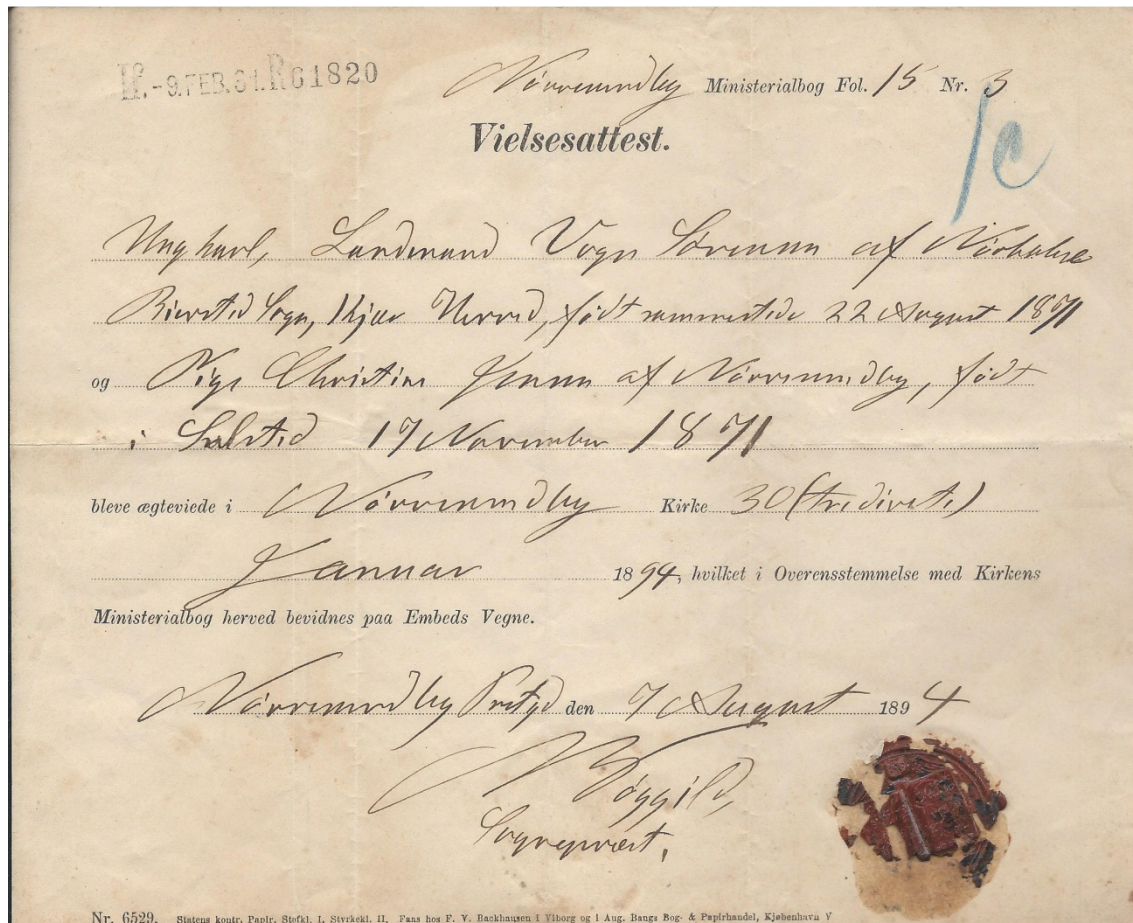 If. - 9. FEB. 31. R 61820
Nörresundby Ministerialbog Fol. 15 Nr. 3
1c
Vielsesattest.
Ungkarl, Landmand Vogn Sörensen af Nörhalne
Biersted Sogn, Kjær Herred, født sammesteds 22 August 1871
og Pige Christine Jensen af Nörresundby, født
i Sulsted 17 November 1871
bleve ægteviede i Nörresundby Kirke 30 (tredivete)
Januar 1894, hvilket i Overensstemmelse med Kirkens
Ministerialbog herved bevidnes paa Embeds Vegne.
Nörresundby Præstgd den 7 August 1894
Böggild,
Sognepræst.
Nr. 6529. Statens kontr. Papir. Stofkl. I. Styrkekl. II. Faas hos F. V. Backhausen i Viborg og i Aug. Bangs Bog- & Papirhandel, Kjøbenhavn V